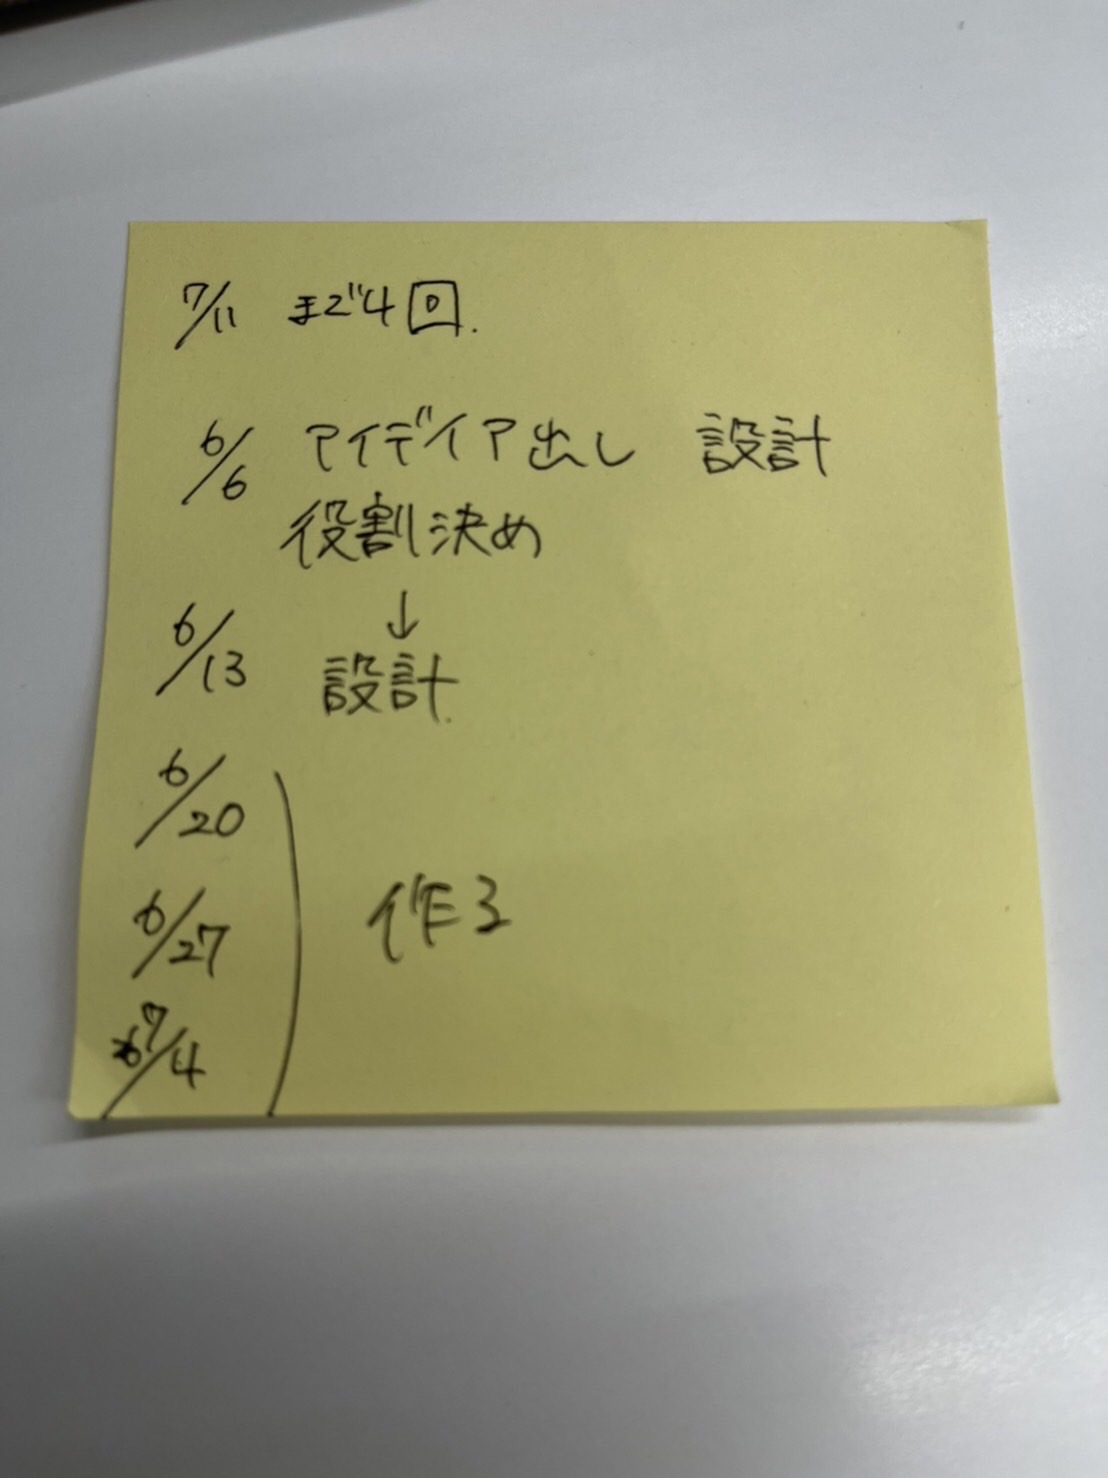 7/11 まで4回.
6/6 アイディア出し 設計
役割決め
↓
6/13 設計.
6/20
6/27 作る
7/4